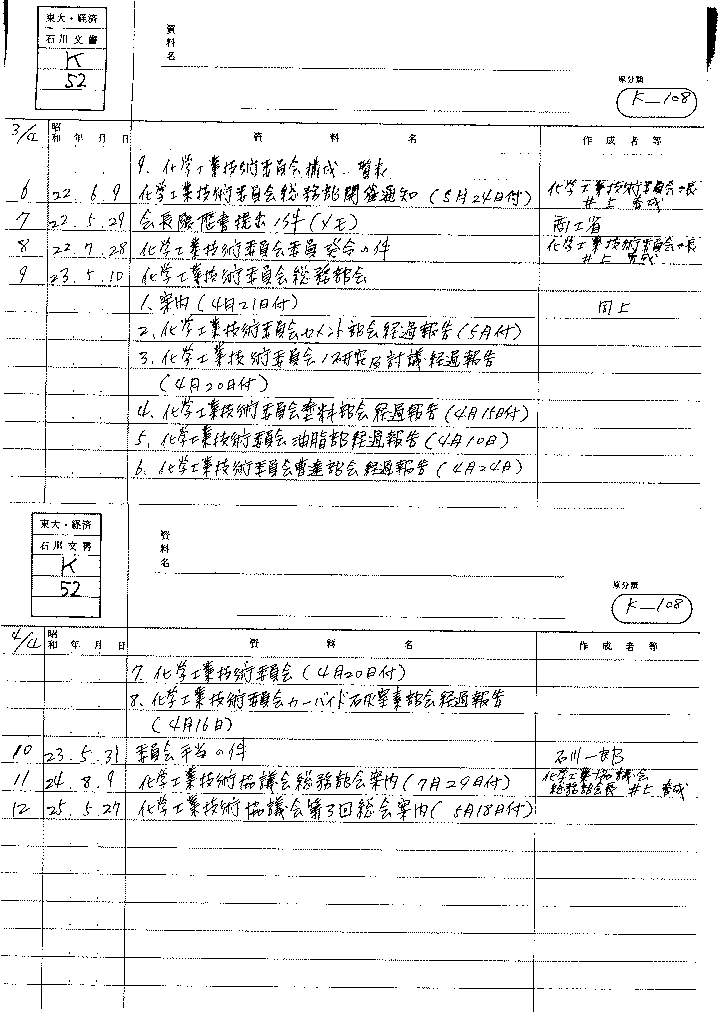 東大・経済
石川文書
K
52
資料名
原分類
K-108
3/4
昭和 年 月 日
資 料 名
作成者等
9. 化学工業技術委員会構成一覧表
6 22.6.9 化学工業技術委員会総務部開催通知(5月24日付) 化学工業技術委員会会長 井上春成
7 22.5.29 会長履歴書提出の件(メモ) 商工省
8 22.7.28 化学工業技術委員会委員発令の件 化学工業技術委員会会長 井上春成
9 23.5.10 化学工業技術委員会総務部会
1. 案内(4月21日付) 同上
2. 化学工業技術委員会セメント部会経過報告(5月付)
3. 化学工業技術委員会研究及討議経過報告
(4月20日付)
4. 化学工業技術委員会塗料部会経過報告(4月15日付)
5. 化学工業技術委員会油脂部経過報告(4月10日)
6. 化学工業技術委員会曹達部会経過報告(4月24日)
東大・経済
石川文書
K
52
資料名
原分類
K-108
4/4
昭和 年 月 日
資 料 名
作成者等
7. 化学工業技術委員会(4月20日付)
8. 化学工業技術委員会カーバイド石灰窒素部会経過報告
(4月16日)
10 23.5.31 委員会手当の件 石川一郎
11 24.8.9 化学工業技術協議会総務部会案内(7月29日付) 化学工業技術協議会 総務部会長 井上春成
12 25.5.27 化学工業技術協議会第3回総会案内(5月18日付)